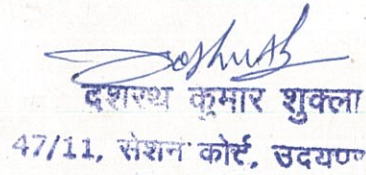 दशरथ कुमार शुक्ला
47/11, सेशन कोर्ट,